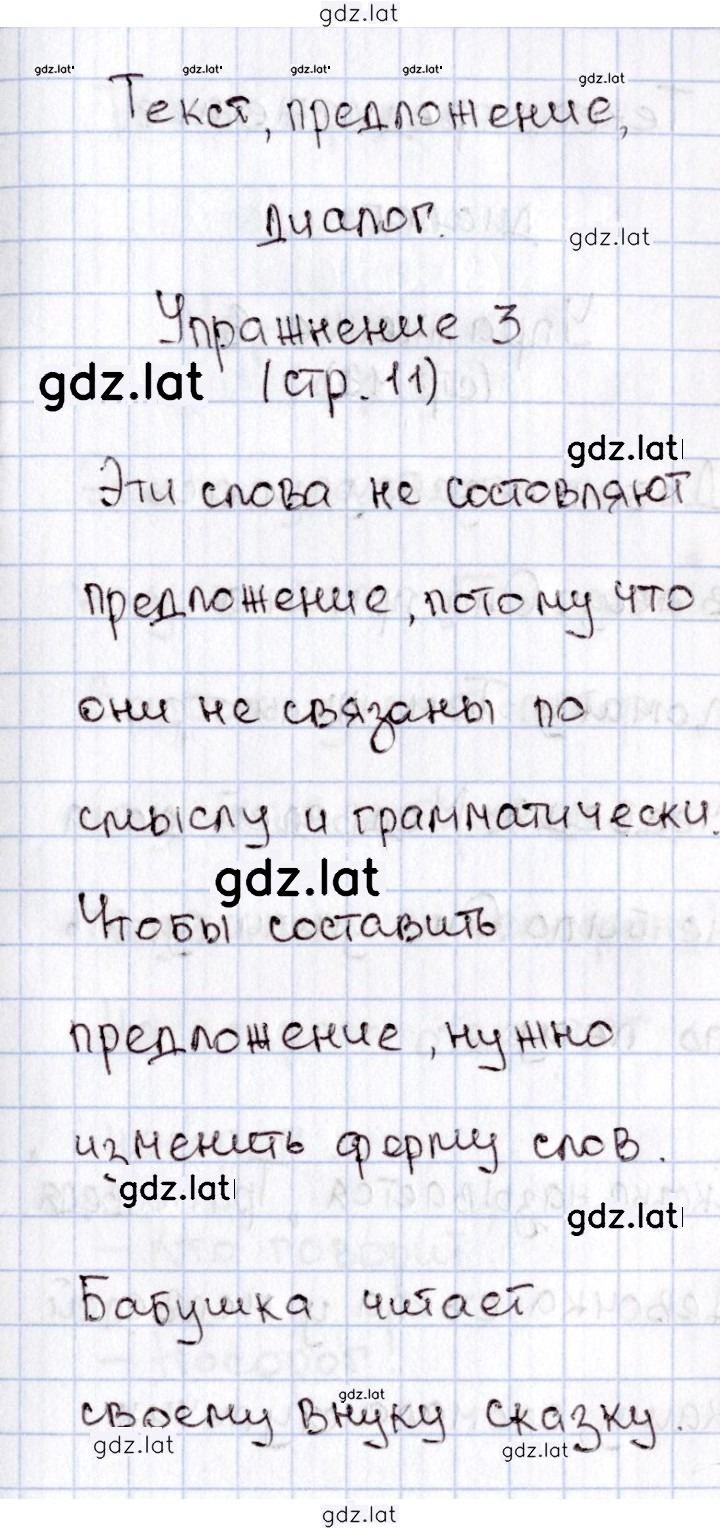 gdz.lat
gdz.lat gdz.lat gdz.lat gdz.lat gdz.lat
Текст, предложение,
диалог. gdz.lat
Упражнение 3
gdz.lat (стр. 11)
gdz.lat
Эти слова не состовляют
предложение, потому что
они не связаны по
смыслу и грамматически.
gdz.lat
Чтобы составить
предложение, нужно
изменить форму слов.
gdz.lat gdz.lat
Бабушка читает
gdz.lat
своему внуку сказку.
gdz.lat gdz.lat
gdz.lat